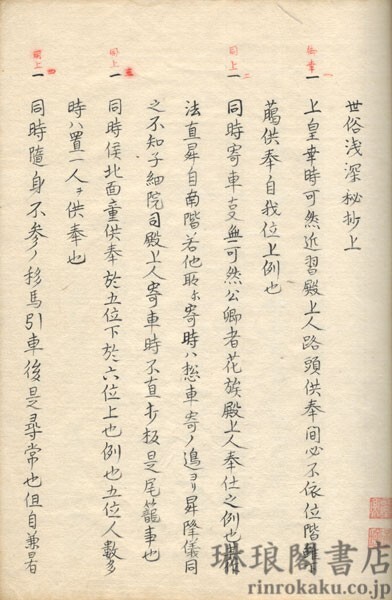 世俗浅深秘抄上
一上皇幸時可然近習殿上人路頭供奉間必不依位階雖下
﨟供奉自我位上例也
一同時寄車事無可然公卿者花族殿上人奉仕之例也
法直昇自南階若他所尓寄時ハ惣車寄ノ邊ヨリ昇降儀同
之不知子細院司殿上人寄車時不直打板是尾籠事也
一同時候北面童供奉於五位下於六位上也例也五位人數多
時ハ置一人ヲ供奉也
一同時随身不参ノ移馬引車後是尋常也但自兼
同上
同上
同上
琳琅閣書店
rinrokaku.co.jp